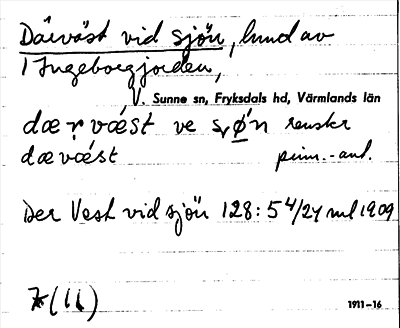 Däväst vid sjön, hund av
1 Ingeborgjorden,
V. Sunne sn, Fryksdals hd, Värmlands län
dæṛ vǽst ve sø̀n
dævǽst prim.-ant.
Der Vest vid sjön 128:5 4/24 ml 1909
7(11)
1911-16